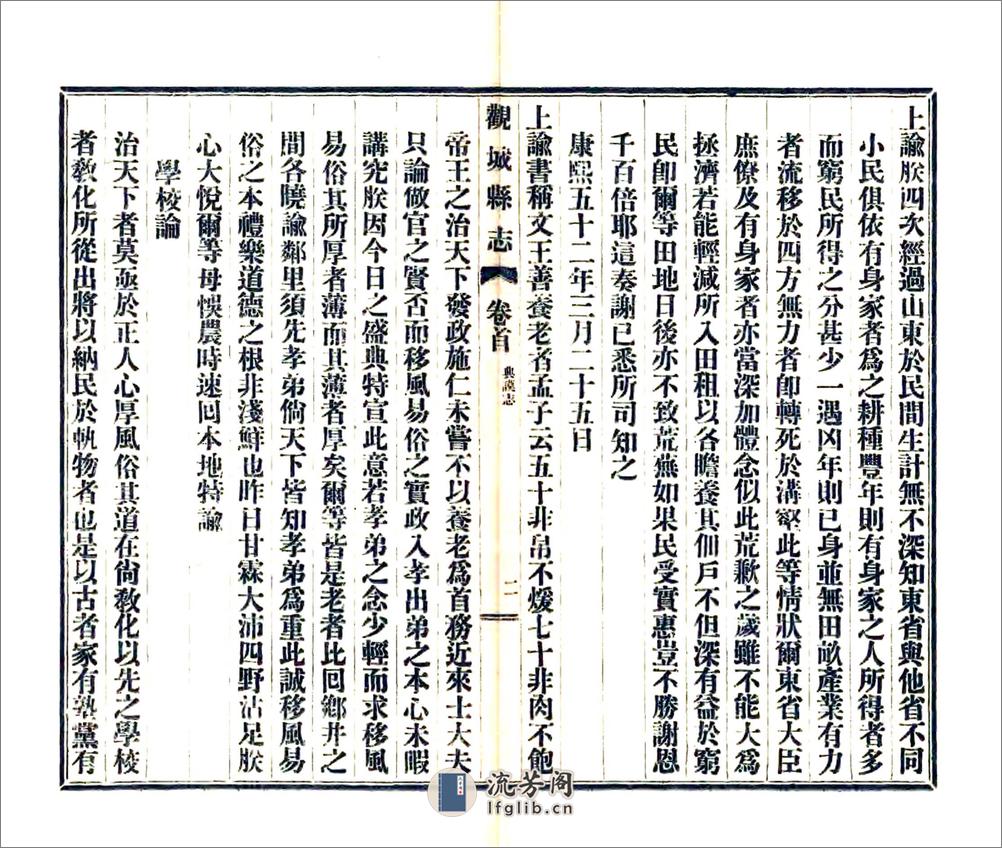 上諭朕四次經過山東於民間生計無不深知東省與他省不同
小民俱依有身家者為之耕種豐年則有身家之人所得者多
而窮民所得之分甚少一遇凶年則已身並無田畝產業有力
者流移於四方無力者卽轉死於溝壑此等情狀爾東省大臣
庶僚及有身家者亦當深加體念似此荒歉之歲雖不能大為
拯濟若能輕減所入田租以各贍養其佃戶不但深有益於窮
民卽爾等田地日後亦不致荒蕪如果民受實惠豈不勝謝恩
千百倍耶這奏謝已悉所司知之
康熙五十二年三月二十五日
上諭書稱文王善養老者孟子云五十非帛不煖七十非肉不飽
觀城縣志 卷首 典謨志 二
帝王之治天下發政施仁未嘗不以養老為首務近來士大夫
只論做官之賢否而移風易俗之實政入孝出弟之本心未暇
講究朕因今日之盛典特宣此意若孝弟之念少輕而求移風
易俗其所厚者薄而其薄者厚矣爾等皆是老者比回鄉井之
間各曉諭鄰里須先孝弟倘天下皆知孝弟為重此誠移風易
俗之本禮樂道德之根非淺鮮也昨日甘霖大沛四野沾足朕
心大悅爾等毋悞農時速回本地特諭
學校論
治天下者莫亟於正人心厚風俗其道在尙敎化以先之學校
者敎化所從出將以納民於軌物者也是以古者家有塾黨有
流芳阁
lfglib.cn